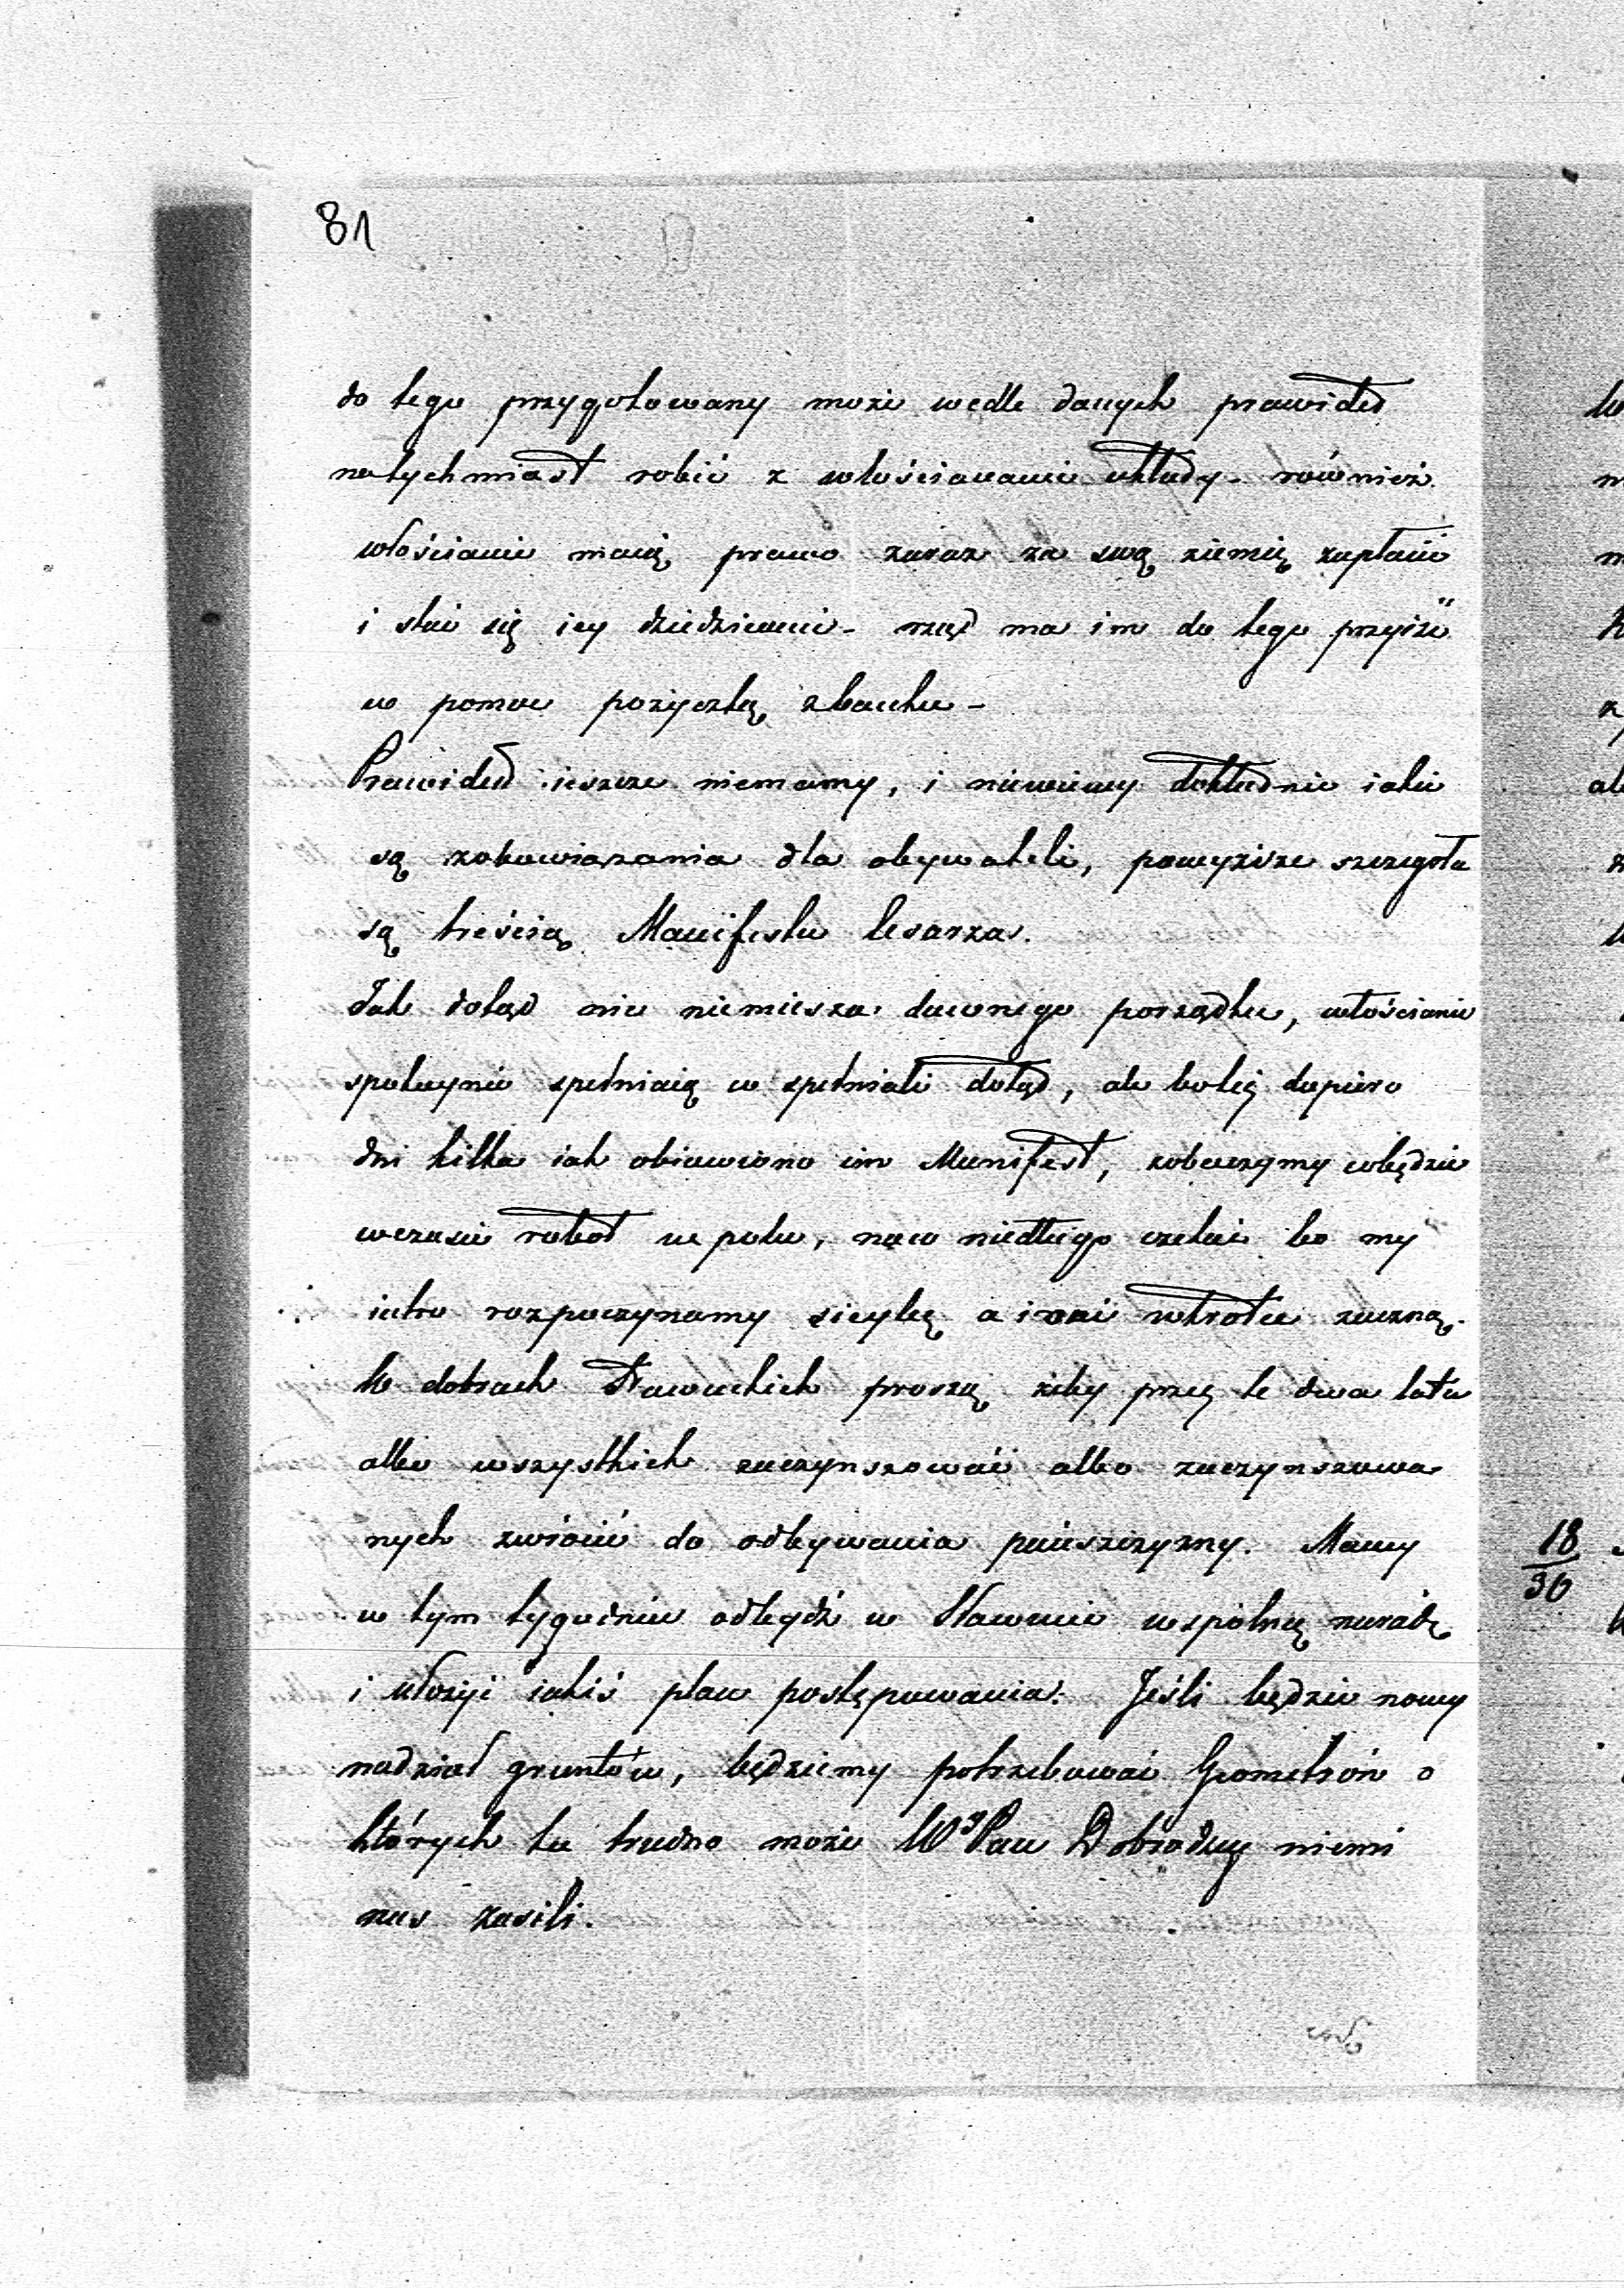 81
do tego przygotowany może wedle danych prawideł
natychmiast robić z włościanami układy - również
włościanie maią prawo zaraz za swą ziemię zapłacić
i stać się iey dziedzicami - rząd ma im do tego przyiść
w pomoc pożyczką z banku -
Prawideł ieszcze niemamy, i niewiemy dokładnie iakie
są zobowiązania dla obywateli, powyższe szczegoła
są treścią Manifestu Cesarza.
Jak dotąd nic niemiesza dawnego porządku, włościanie
spokoynie spełniaią co spełniali dotąd, ale bo też dopiero
dni kilka iak obiawiono im Manifest, zobaczymy co będzie
wczasie robot w polu, naco niedługo czekać bo my
iutro rozpoczynamy sieybę a i oni wkrotce zaczną.
W dobrach Sławuckich proszą żeby przez te dwa lata
albo wszystkich zaczynszować albo zaczynszowa
nych zwrócić do odbywania pańszczyzny. Mamy
w tym tygodniu odbydź w Sławucie wspólną naradę
i ułożyć iakiś plan postępowania. Jeśli będzie nowy
nadział gruntów, będziemy potrzebować Geometrów o
których tu trudno może WP Pan Dobrodzey niemi
nas zasili.
18
30